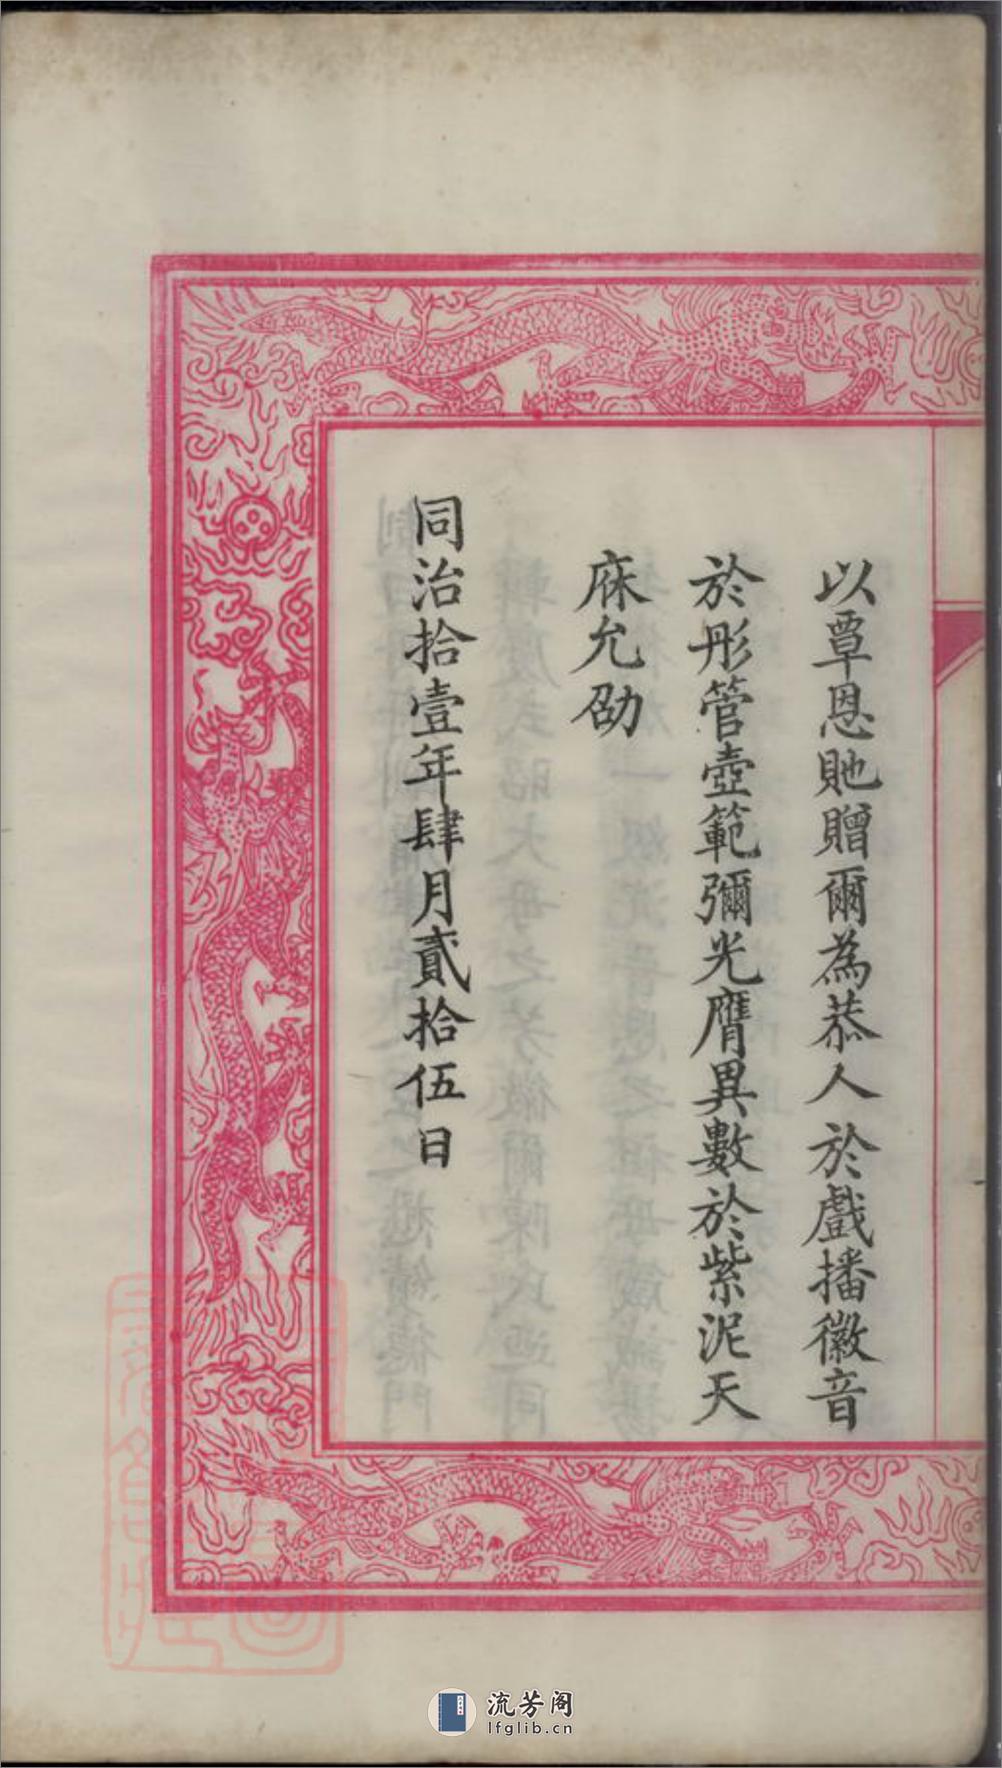 以覃恩貤贈爾為恭人於戲播徽音
於彤管壼範彌光膺異數於紫泥天
庥允劭
同治拾壹年肆月貳拾伍日
流芳阁
lfglib.cn